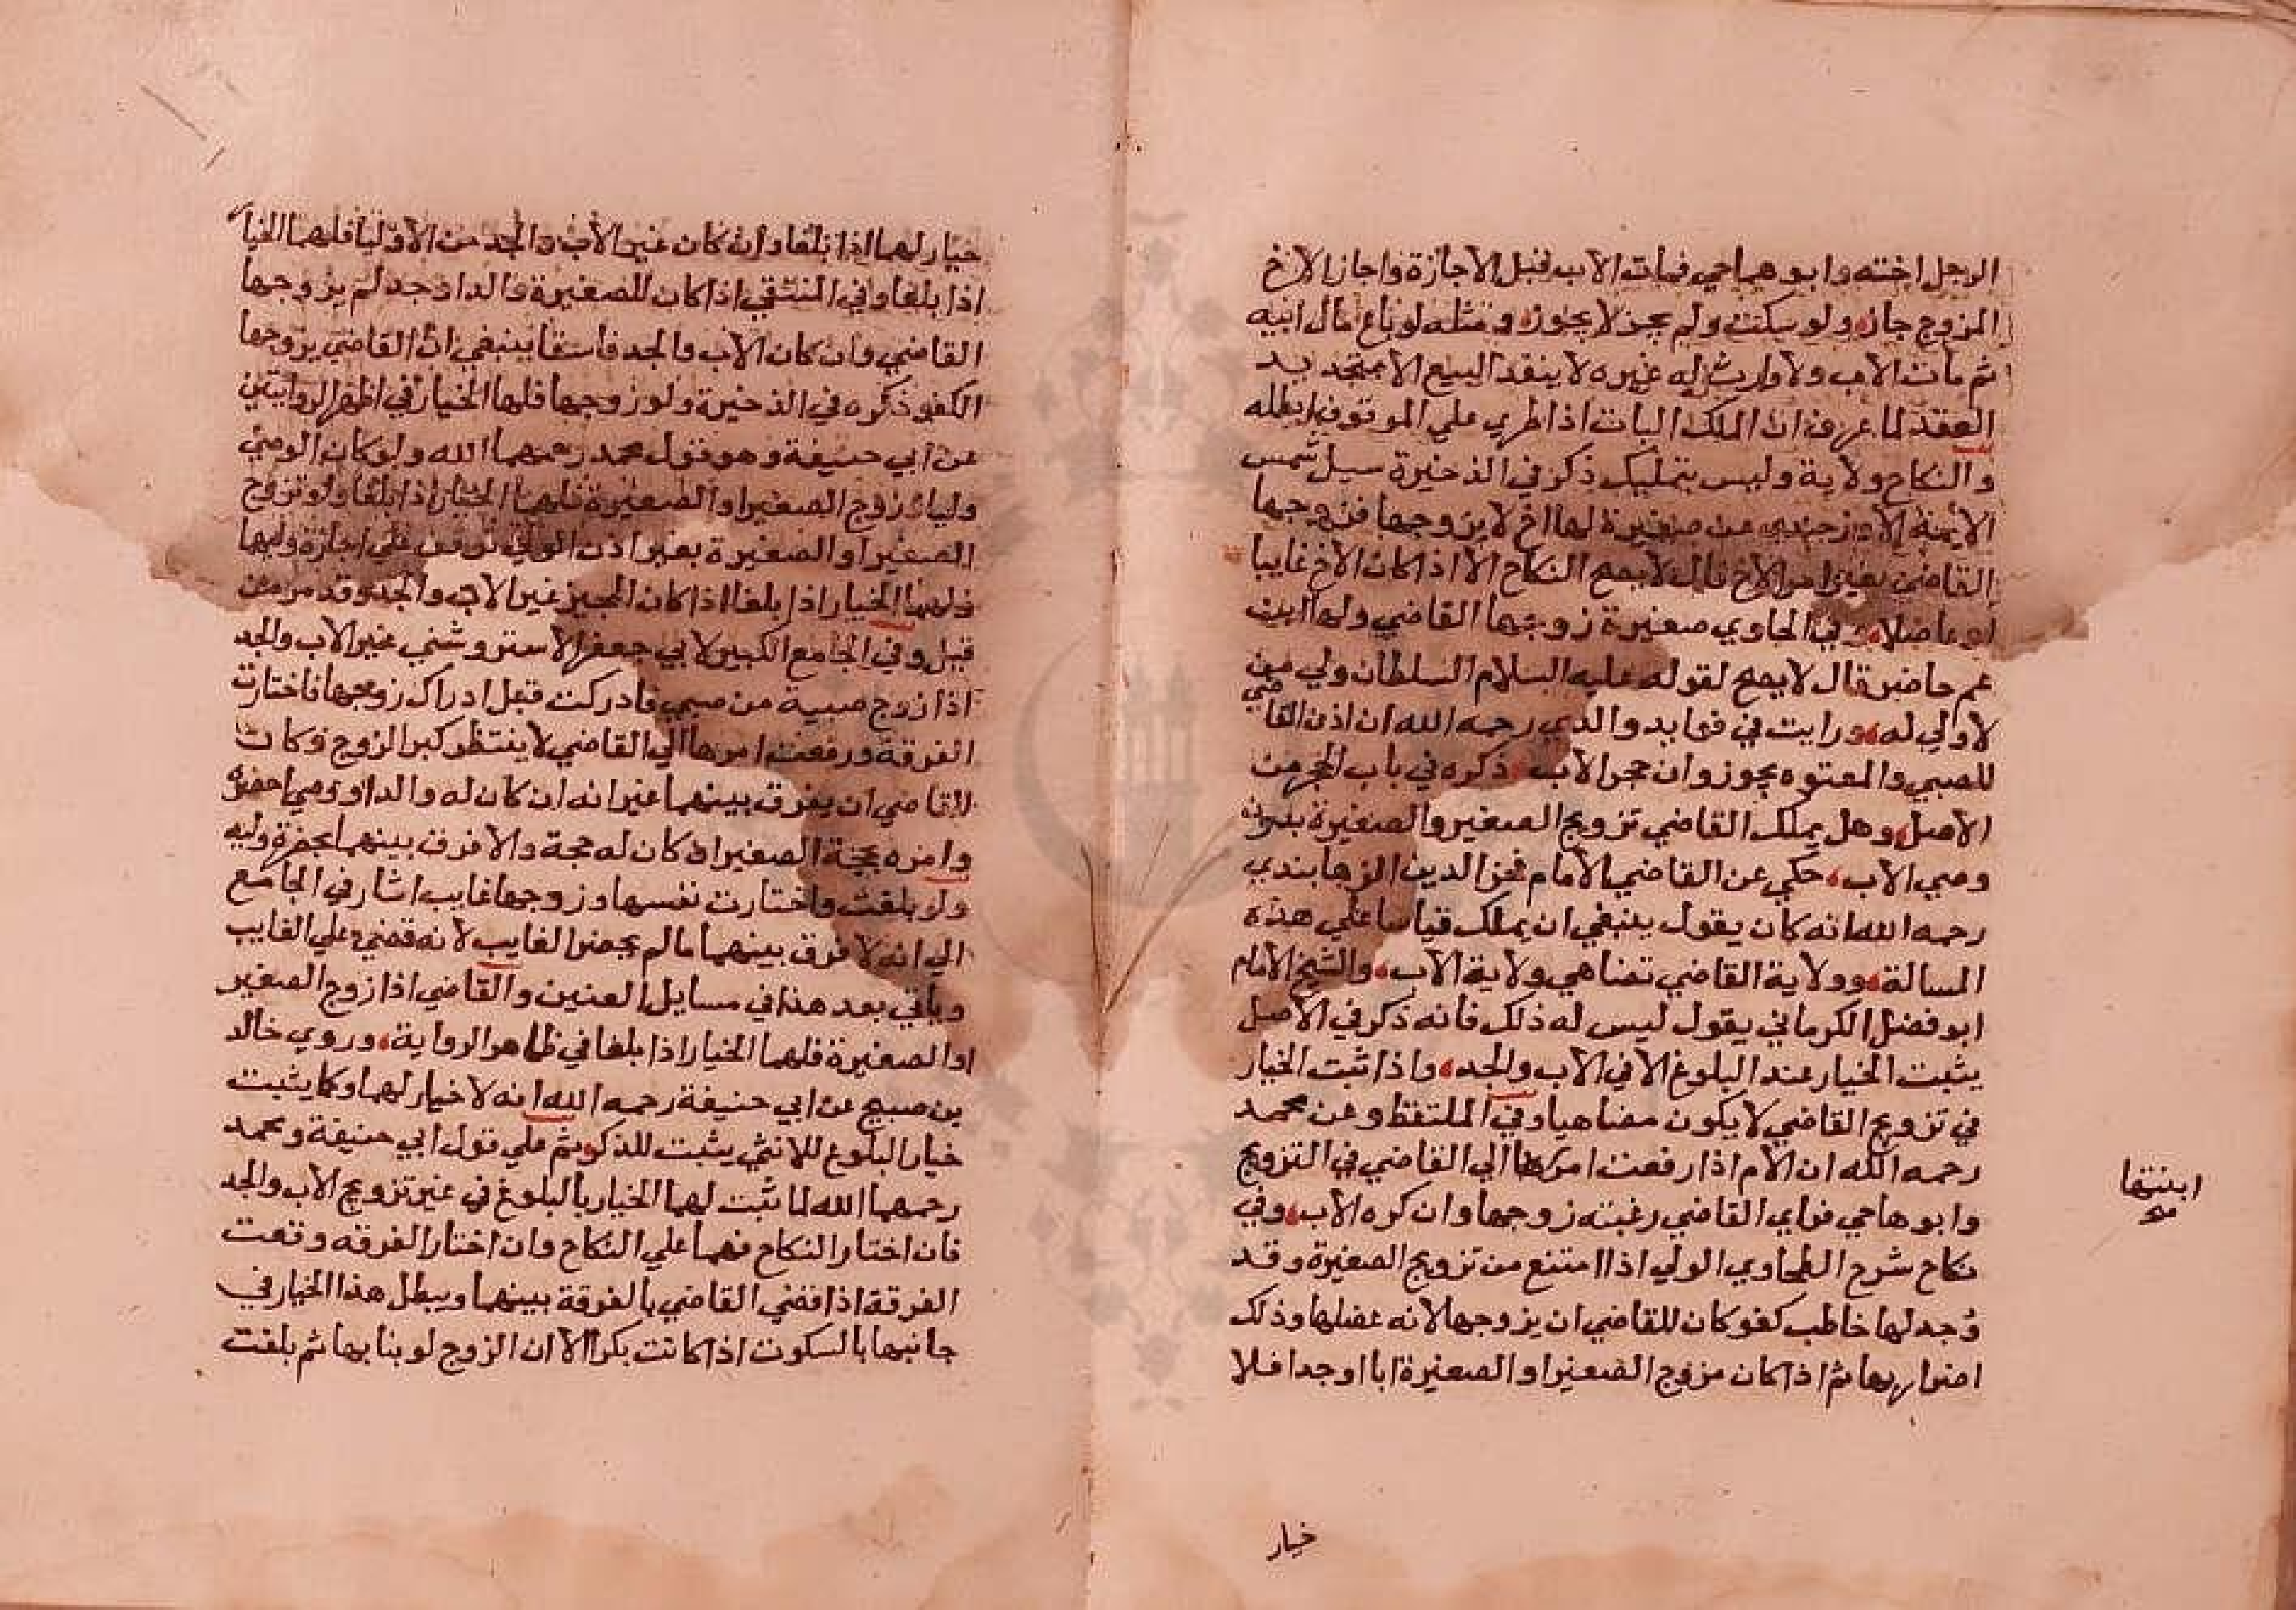 الرجل اخته وابوهيا حي فمات الاب قبل الاجازة واجاز الاخ
المزوج جاز ولو سكت ولم يجز لا يجوز ومثله لو باع مال ابيه
ثم مات الاب ولا وارث له غيره لا ينفد البيع الا بتجديد
العقد لما عرف ان الملك البات اذا طري علي الموقوف ابطله
والنكاح ولاية وليس بتمليك ذكر في الذخيرة سيل شمس
الايمة الاوزجندي عن صغيرة لها اخ لا يزوجها فزوجها
القاضي بغير امر الاخ قال لا يصح النكاح الا اذا كان الاخ غايبا
او عاضلا وفي الحاوي صغيرة زوجها القاضي ولها ابن
عم حاضر قال لا يصح لقوله عليه السلام السلطان ولي من
لا ولي له ورايت في فوايد والدي رحمه الله ان اذن القاضي
للصبي والمعتوه يجوز وان حجر الاب ذكره في باب الحجر من
الاصل وهل يملك القاضي تزويج الصغير والصغيرة بدون
وصي الاب حكي عن القاضي الامام فخر الدين
رحمه الله انه كان يقول ينبغي ان يملك قياسا علي هذه
المسالة وولاية القاضي تضاهي ولاية الاب والشيخ الامام
ابو فضل الكرماني يقول ليس له ذلك فانه ذكر في الاصل
يثبت الخيار عند البلوغ الا في الاب والجد واذا ثبت الخيار
في تزويج القاضي لا يكون مضاهيا وفي الملتقط وعن محمد
رحمه الله ان الام اذا رفعت امرها الي القاضي في التزويج
وابوها حي فراي القاضي رغبته زوجها وان كره الاب وفي
نكاح شرح الطحاوي الولي اذا امتنع من تزويج الصغيرة وقد
وجد لها خاطب كفو كان للقاضي ان يزوجها لانه عضلها وذلك
اضرار بها ثم اذا كان مزوج الصغير او الصغيرة ابا او جدا فلا
ابنتها
خيار
خيار لهما اذا بلغا وان كان غير الاب والجد من الاوليا فلهما الخيا
اذا بلغا وفي المنتقي اذا كان للصغيرة والد او جد لم يزوجها
القاضي وان كان الاب والجد فاسقا ينبغي ان القاضي يزوجها
الكفو ذكره في الذخيرة ولو زوجها فلها الخيار في اظهر الروايتين
عن ابي حنيفة وهو قول محمد رحمهما الله ولو كان الوصي
وليا فزوج الصغير او الصغيرة فلهما الخيار اذا بلغا ولو تزوج
الصغير او الصغيرة بغير اذن الولي توقف علي اجازة وليها
ولهما الخيار اذا بلغا اذا كان المجيز غير الاب والجد وقد مر من
قبل وفي الجامع الكبير لابي جعفر الاستروشني غير الاب والجد
اذا زوج صبية من صبي فادركت قبل ادراك زوجها فاختارت
الفرقة ورفعت امرها الي القاضي لا ينتظر كبر الزوج وكان
للقاضي ان يفرق بينهما غير انه ان كان له والد او وصي احضره
وامره بحجة الصغير ان كان له حجة والا فرق بينهما بحضرة وليه
ولو بلغت واختارت نفسها وزوجها غايب اشار في الجامع
الي انه لا فرق بينهما ما لم يحضر الغايب لانه قضي علي الغايب
وياتي بعد هذا في مسايل العنين والقاضي اذا زوج الصغير
او الصغيرة فلهما الخيار اذا بلغا في ظاهر الرواية وروي خالد
بن صبيح عن ابي حنيفة رحمه الله انه لا خيار لهما وكما يثبت
خيار البلوغ للانثي يثبت للذكر ثم علي قول ابي حنيفة ومحمد
رحمهما الله لما ثبت لهما الخيار بالبلوغ في غير تزويج الاب والجد
فان اختارا النكاح فهما علي النكاح وان اختارا الفرقه وقعت
الفرقة اذا قضي القاضي بالفرقة بينهما ويبطل هذا الخيار في
جانبها بالسكوت اذا كانت بكرا الا ان الزوج لو بنا بها ثم بلغت